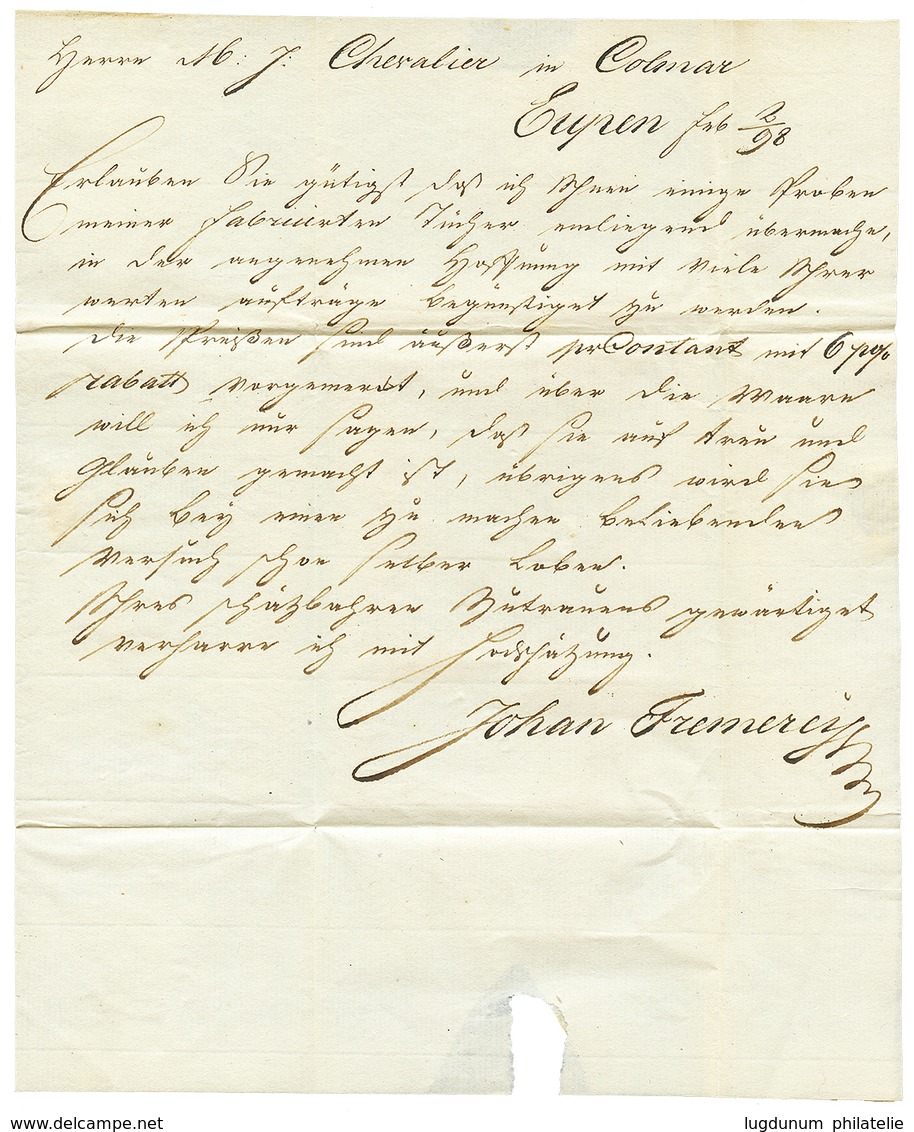 Herrn M: J: Chevalier in Colmar
Eupen Feb 2/98
Erlauben Sie gütigst daß ich Ihnen einige Proben
meiner fabricirten Tücher einliegend übermache,
in der angenehmen Hoffnung mit viele Ihrer
werten aufträge begünstiget zu werden.
Die Preißen sind äußerst pr Contant mit 6 p%
rabatt vorgemerckt, und über die Waare
will ich nur sagen, daß sie auf treu und
Glauben gemacht ist, übrigens wird sie
sich bey einen zu machen beliebenden
Versuch schon selber Loben.
Ihres schäzbahren Zutrauens gewärtiget
verharre ich mit Hochschäzung.
Johan Fremereij
www.delcampe.net
lugdunum philatelie